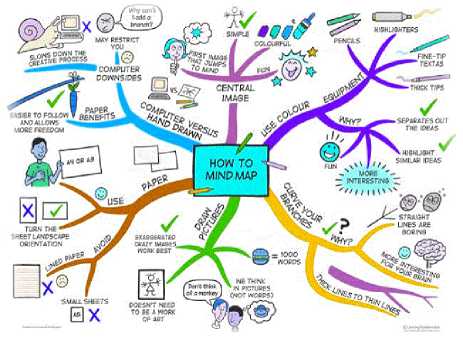 HOW TO
MIND MAP
CENTRAL
IMAGE
SIMPLE
COLOURFUL
FUN
FIRST IMAGE
THAT JUMPS
TO MIND
VS
USE COLOUR
EQUIPMENT
PENCILS
HIGHLIGHTERS
FINE-TIP
TEXTAS
THICK TIPS
WHY?
SEPARATES OUT
THE IDEAS
HIGHLIGHT
SIMILAR IDEAS
FUN
MORE
INTERESTING
CURVE YOUR
BRANCHES
WHY?
?
STRAIGHT
LINES ARE
BORING
MORE INTERESTING
FOR YOUR BRAIN
THICK LINES TO THIN LINES
DRAW
PICTURES
= 1000
WORDS
WE THINK
IN PICTURES
(NOT WORDS)
Don't think
of a monkey
EXAGGERATED
CRAZY IMAGES
WORK BEST
DOESN'T NEED
TO BE A WORK
OF ART
PAPER
USE
A4 OR A3
TURN THE
SHEET LANDSCAPE
ORIENTATION
AVOID
LINED PAPER
SMALL SHEETS
A5
COMPUTER VERSUS
HAND DRAWN
PAPER
BENEFITS
EASIER TO FOLLOW
AND ALLOWS
MORE FREEDOM
COMPUTER
DOWNSIDES
SLOWS DOWN THE
CREATIVE PROCESS
MAY RESTRICT
YOU
Why can't
I add a
branch?